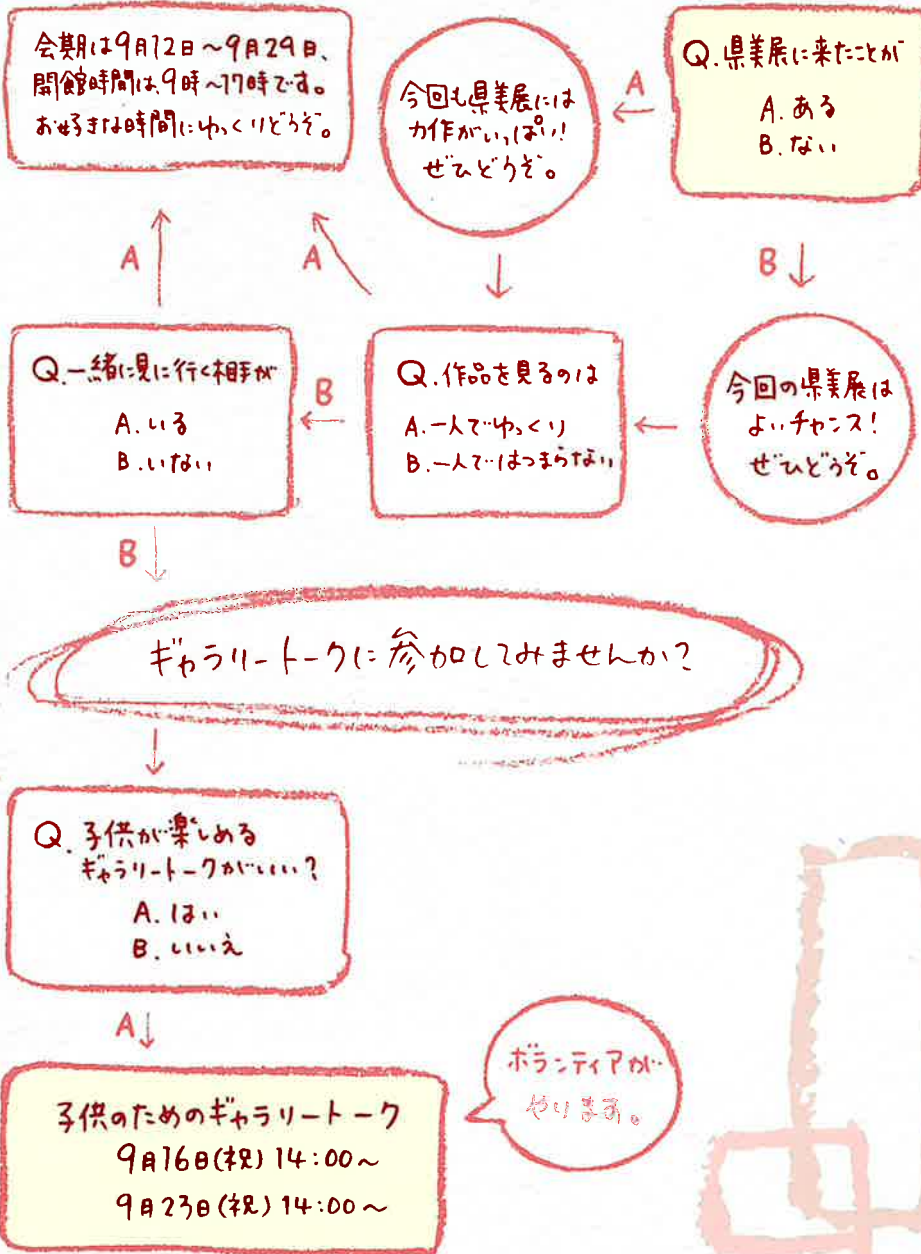 会期は9月12日～9月29日、
開館時間は、9時～17時です。
お好きな時間にゆっくりどうぞ。
今回も県美展には
力作がいっぱい!
ぜひどうぞ。
A
Q.県美展に来たことが
A.ある
B.ない
A
A
B
Q.一緒に見に行く相手が
A.いる
B.いない
B
Q.作品を見るのは
A.一人でゆっくり
B.一人ではつまらない
今回の県美展は
よいチャンス!
ぜひどうぞ。
B
ギャラリートークに参加してみませんか?
Q.子供が楽しめる
ギャラリートークがいい?
A.はい
B.いいえ
A
子供のためのギャラリートーク
9月16日(祝)14:00～
9月23日(祝)14:00～
ボランティアが
やります。